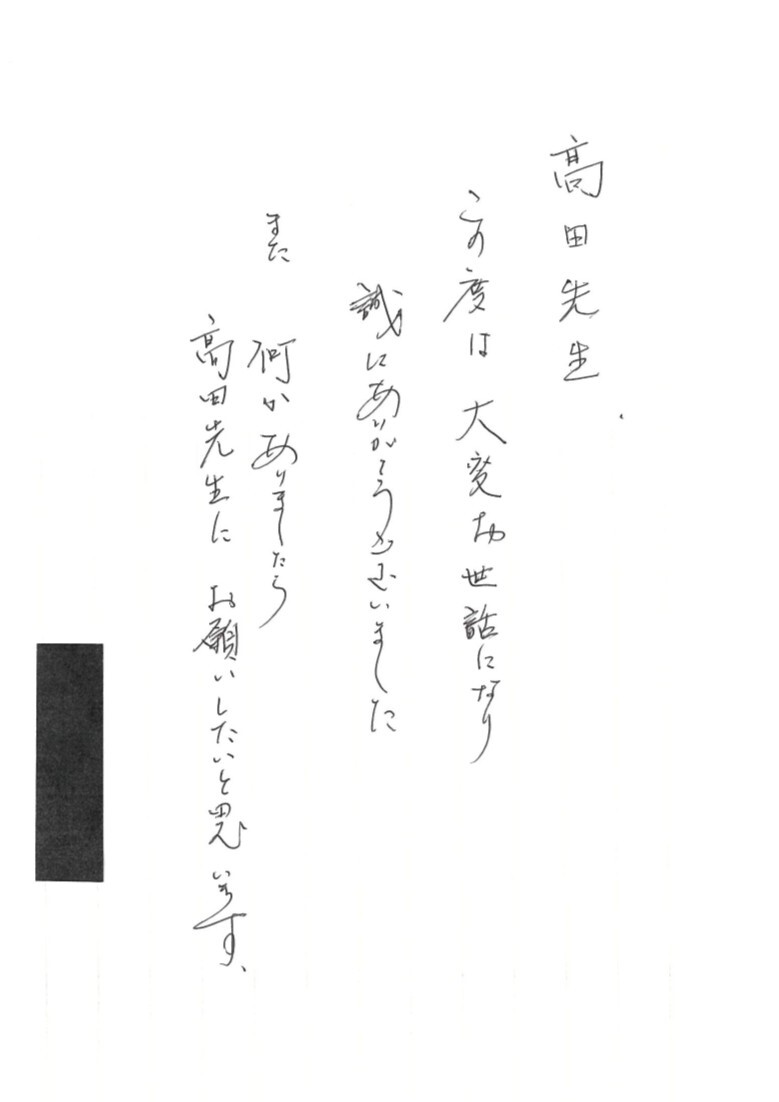 高田先生
この度は 大変お世話になり
誠にありがとうございました
また 何かありましたら
高田先生に お願いしたいと思います、